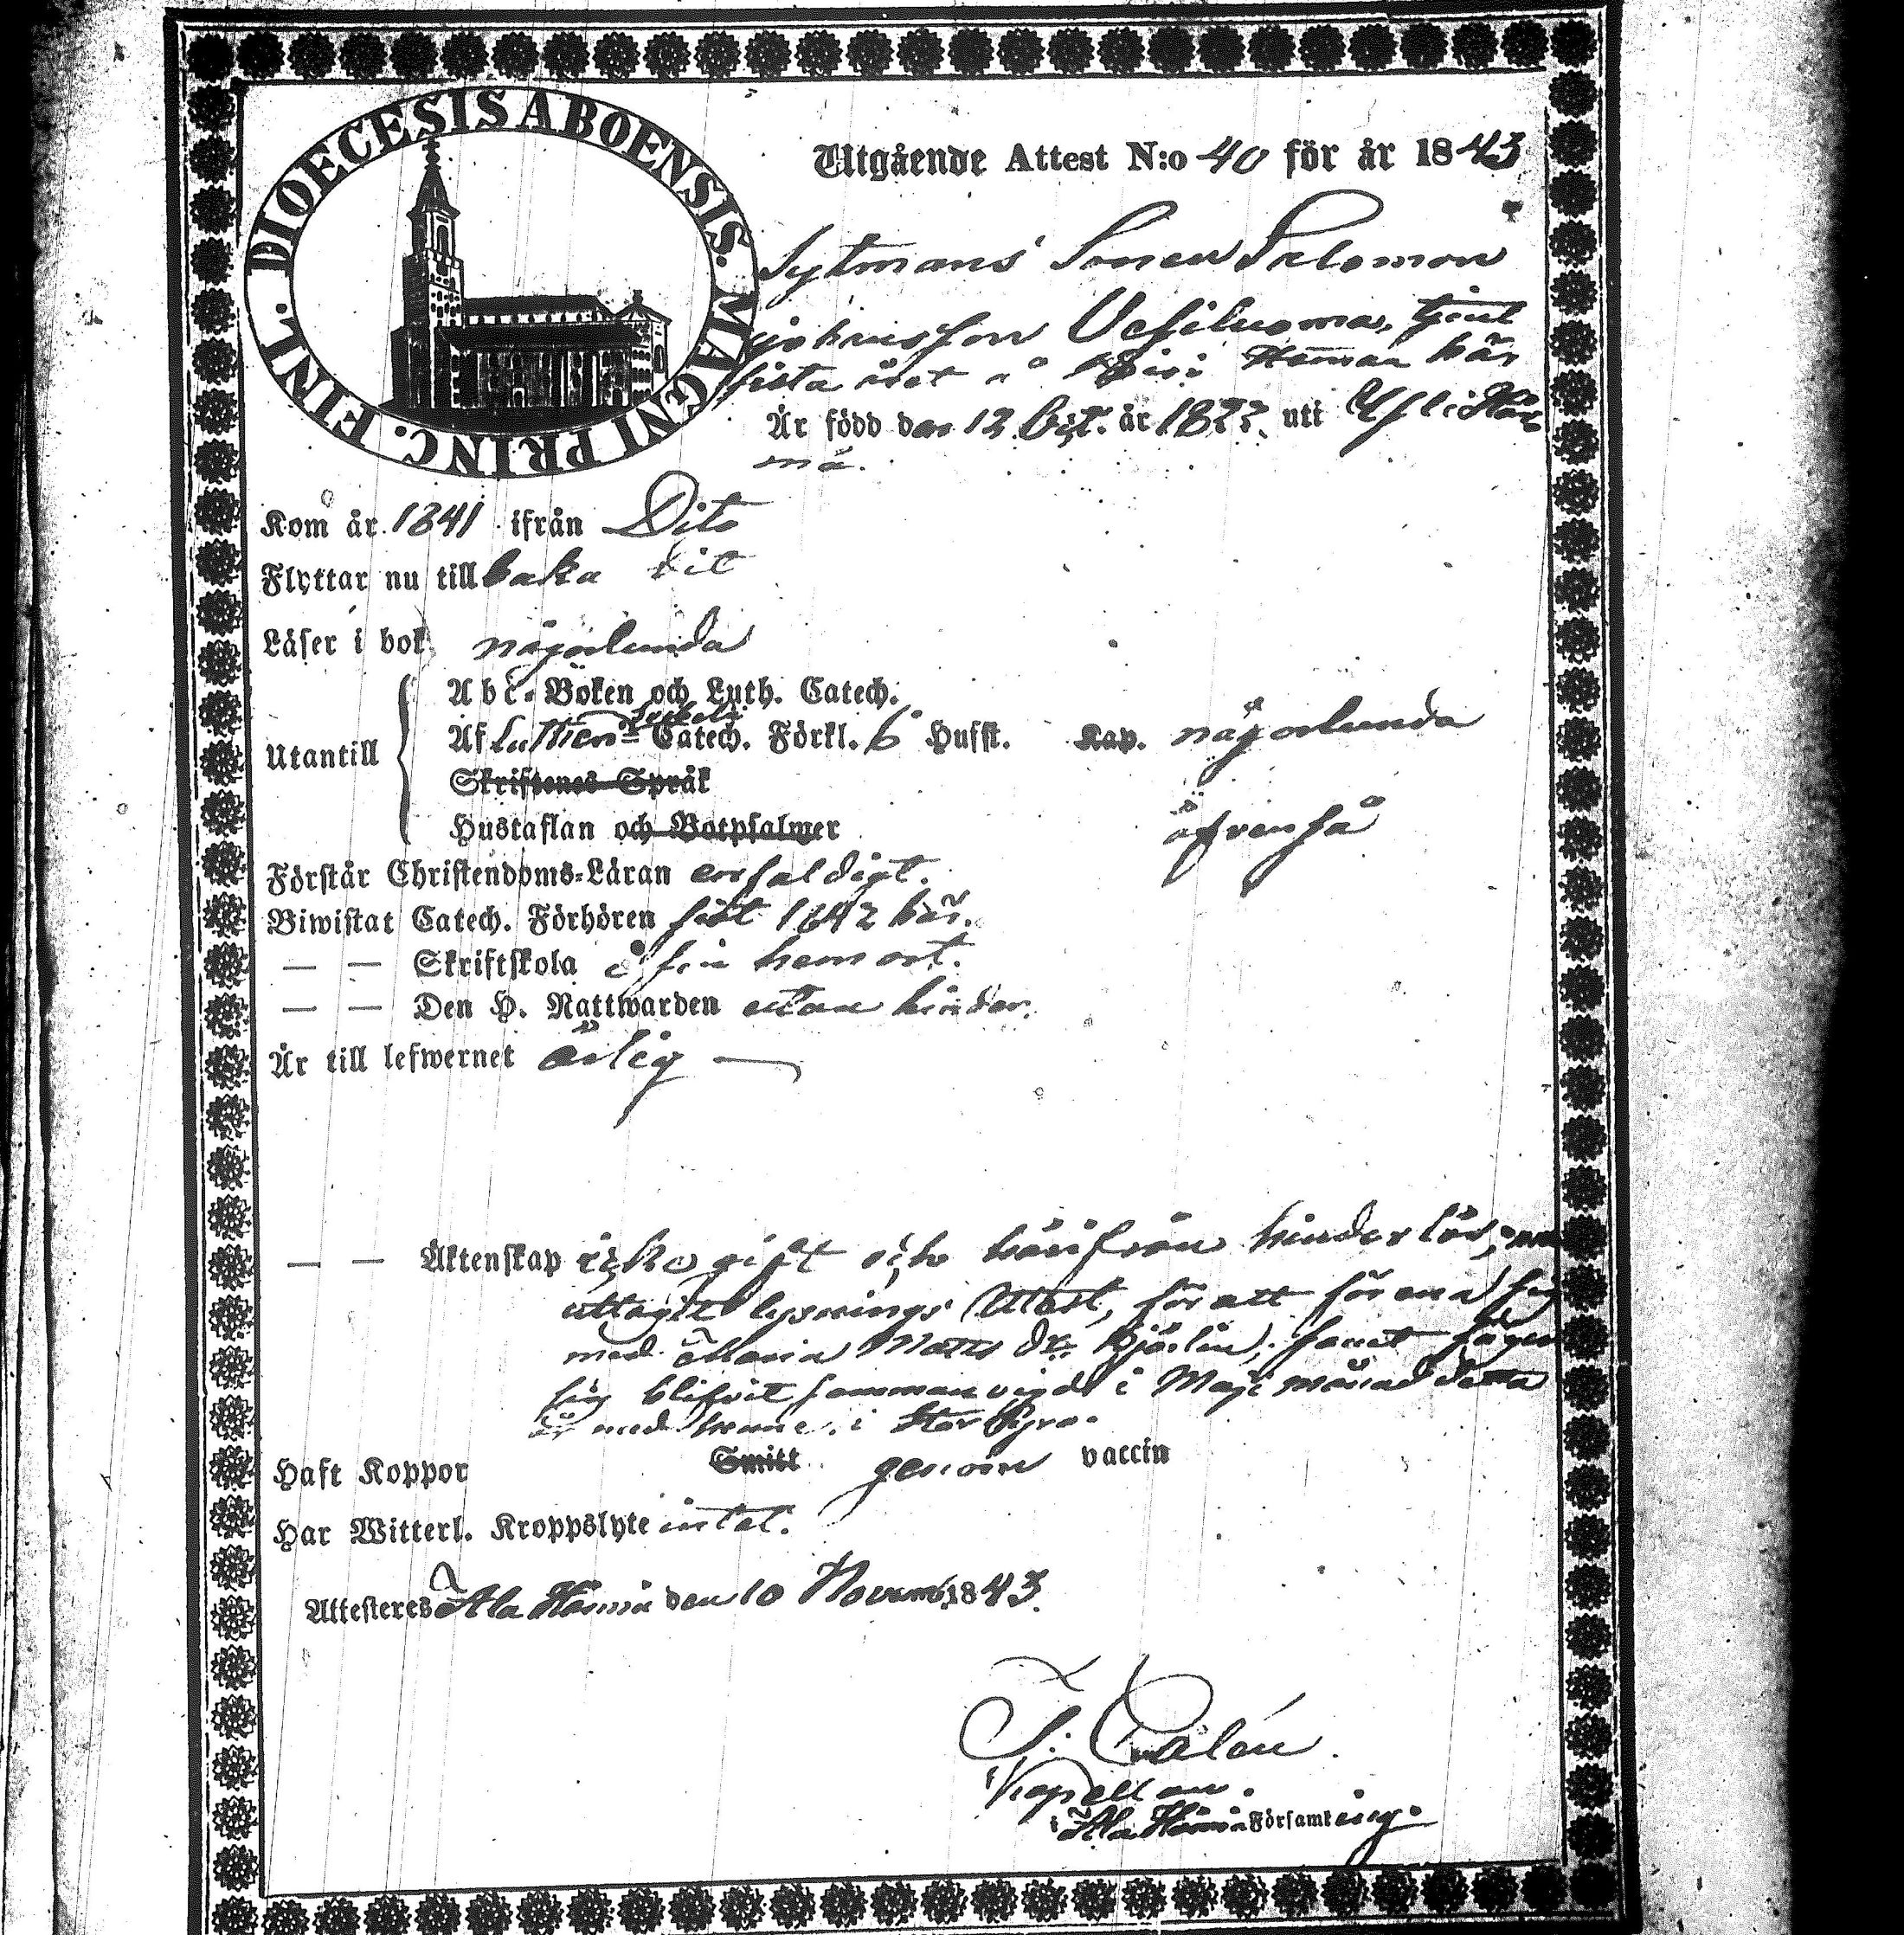 DIOECESIS ABOENSIS. MAGNI PRINC. FINL.
Utgående Attest N:o 40 för år 1843
Sytmans Sonen Salomon
Johansson Vesiluoma, tjent
sista året å Heman här
Är född den 12 år 182 uti Ylihär
mä.
Kom år 1841 ifrån Dito
Flyttar nu till baka dit
Läser i bok någorlunda
Abc-Boken och Luth. Catech.
Utantill
Af Catech. Förkl. 6 Hufst. Kap. någorlunda
Skriftenes Språk
Hustaflan och Botpsalmer äfvenså
Förstår Christendoms-Läran enfaldigt.
Biwistat Catech. Förhören sist 1842 här.
— — Skriftskola å sin hemort.
— — Den H. Nattwarden utan hinder.
Är till lefwernet ärlig —
— — Äktenskap icke gift och härifrån hinderlös,
uttagit lysnings Attest, för att förena sig
med Maria Matts dr. Björlin, samt säger
sig blifvit sammanvigd i Maji månad detta
år med henne i Storkyro.
Haft Koppor Smitt genom vaccin
Har Witterl. Kroppslyte intet.
Attesteres Ala Härmä den 10 Novemb. 1843.
Kapellan.
i Ala Härmä Församling.